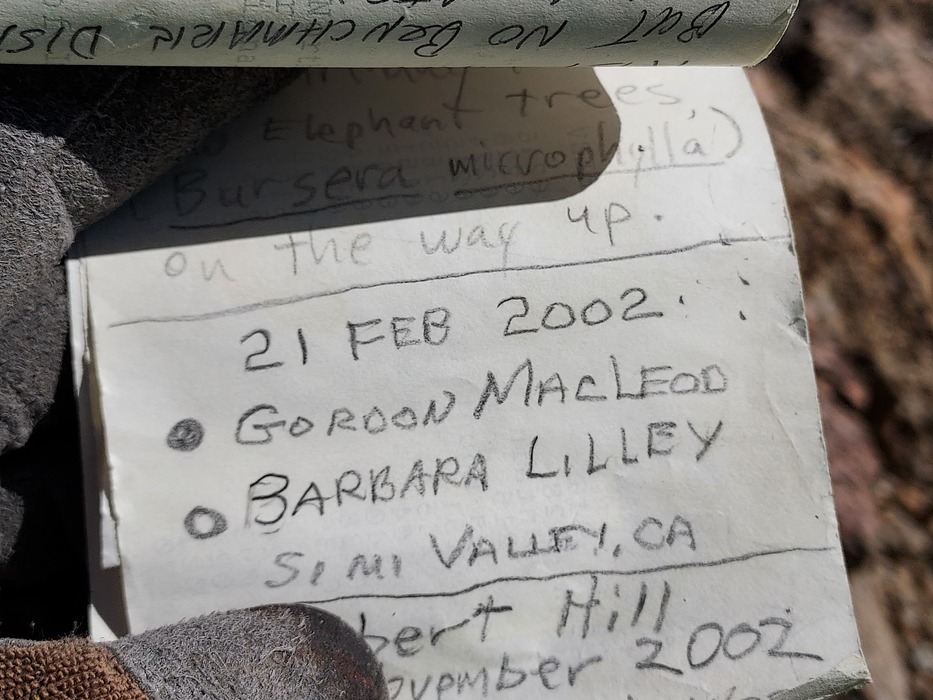 BUT NO BENCHMARK DISK
Elephant trees,
(Bursera microphylla)
on the way up.
21 FEB 2002
GORDON MACLEOD
BARBARA LILLEY
SIMI VALLEY, CA
bert Hill
ovember 2002